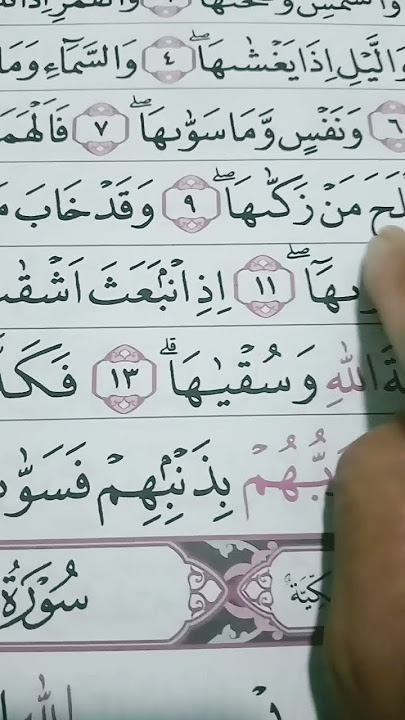 وَالشَّمْسِ وَضُحٰىهَا ۝١ وَالْقَمَرِ اِذَا
وَالَّيْلِ اِذَا يَغْشٰىهَاۖ ۝٤ وَالسَّمَاۤءِ وَمَا
۝٦ وَنَفْسٍ وَّمَا سَوّٰىهَاۖ ۝٧ فَاَلْهَمَ
مَنْ زَكّٰىهَاۖ ۝٩ وَقَدْ خَابَ
۝١١ اِذِ انْۢبَعَثَ اَشْقٰ
اللّٰهِ وَسُقْيٰهَاۗ ۝١٣ فَكَذَّ
بُّهُمْ بِذَنْۢبِهِمْ فَسَوّٰ
مَكِّيَّةٌ سُوْرَةُ
اللّٰهِ